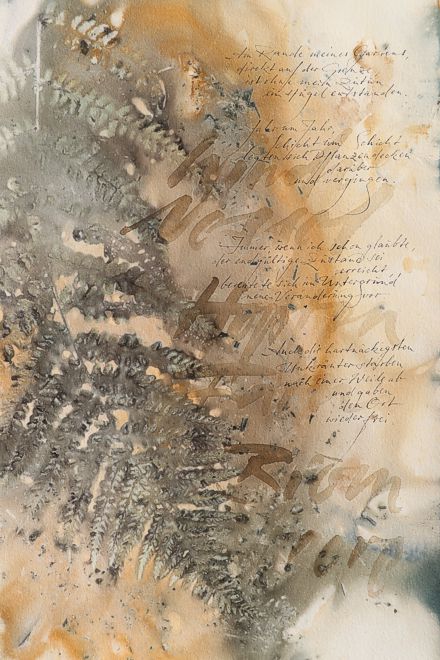 Am Rande meines Gartens,
direkt auf der Grenze
ist ohne mein Zutun
ein Hügel entstanden.
Jahr um Jahr,
Schicht um Schicht
legten sich Pflanzendecken
darüber
und vergingen.
Immer, wenn ich schon glaubte,
der endgültige Zustand sei
erreicht
bereitete sich im Untergrund
neue Veränderung vor
Auch die hartnäckigsten
Unkräuter starben
nach einer Weile ab
und gaben
den Ort
wieder frei